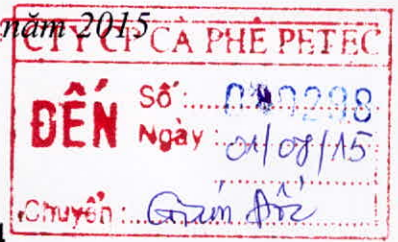 năm 2015
CTY CP CÀ PHÊ PETEC
ĐẾN
Số:
Ngày: 01/08/15
Chuyển: Giám đốc